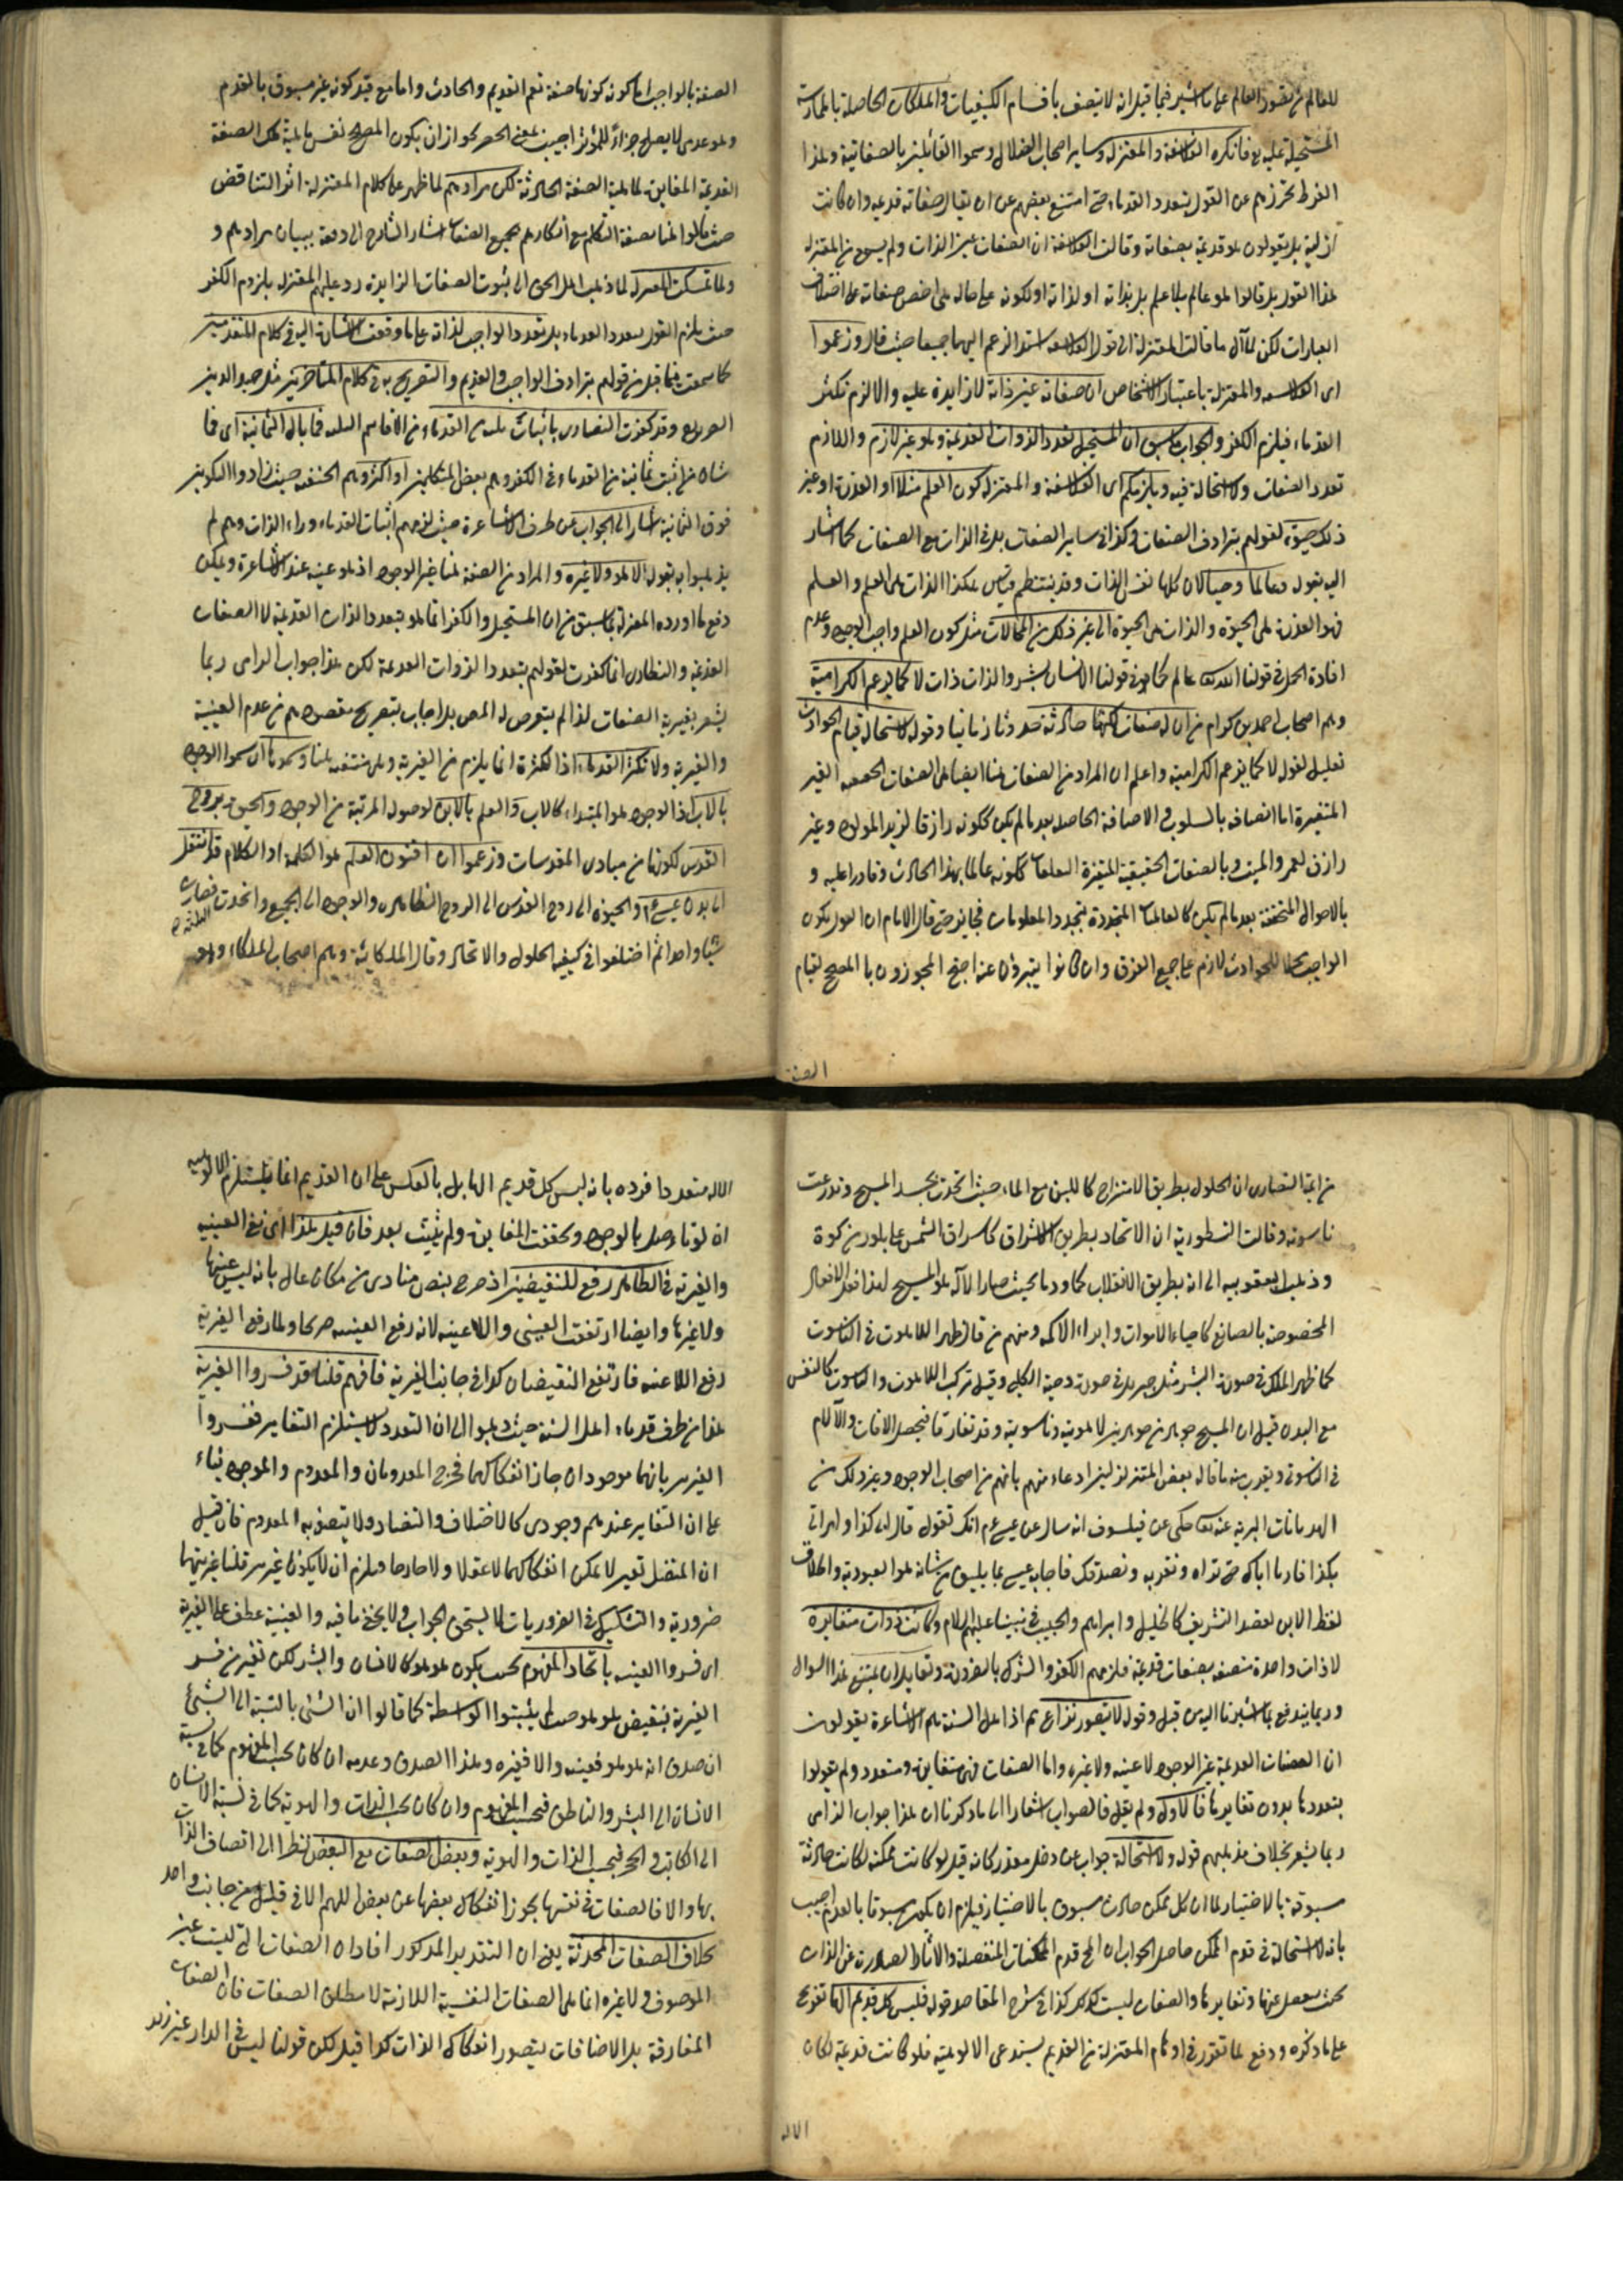 للعالم ثم تصور العالم على ما اشير فيما قيل انه لا يتصف باقسام الكيفيات والملكات الحاصلة بالممارسة
المستحيلة عليه تع فانكره الفلاسفة والمعتزلة وساير اصحاب الضلال وسموا القائلين بالصفاتية ولهذا
الفرط تحرزهم عن القول بتعدد القدماء حتى امتنع بعضهم عن ان يقال صفاته قديمة وان كانت
ازلية بل يقولون هو قديم بصفاته وقالت الفلاسفة ان الصفات عين الذات ولم يسمع من المعتزلة
هذا القول بل قالوا هو عالم بلا علم بل بذاته او لذاته او لكونه على حالة هي اخص صفاته على اختلاف
العبارات لكن لما آل ما قالت المعتزلة الى قول الفلاسفة اسند الزعم اليهما جميعا حيث قال وزعموا
اى الفلاسفة والمعتزلة باعتبار الاشخاص ان صفاته عين ذاته لا زايدة عليه والا لزم تكثر
القدماء فيلزم الكفر والجواب ما سبق ان المستحيل تعدد الذوات القديمة وهو غير لازم واللازم
تعدد الصفات ولا استحالة فيه ويلزمكم اى الفلاسفة والمعتزلة كون العلم مثلا او القدرة او غير
ذلك حيوة لقولهم بترادف الصفات وكذا في ساير الصفات بل في الذات مع الصفات كما اشار
اليه بقوله وعالما وحيا لان كلها نفس الذات وقد ينتظم قياس هكذا الذات هى العلم والعلم
هو القدرة هى الحيوة والذات هى الحيوة الى غير ذلك من المحالات مثل كون العلم واجب الوجود وعدم
افادة الحمل في قولنا الله تعالى عالم كما هو في قولنا الانسان بشر والذات ذات لا كما يزعم الكرامية
وهم اصحاب احمد بن كرام من ان له صفات لكنها حادثة حدوثا زمانيا وقوله لاستحالة قيام الحوادث
تعليل لقوله لا كما يزعم الكرامية واعلم ان المراد من الصفات هنا ايضا هى الصفات الحقيقية الغير
المتغيرة اما اتصافه بالسلوب والاضافة الحاصلة بعد ما لم يكن ككونه رازقا لزيد المولود وغير
رازق لعمرو الميت وبالصفات الحقيقية المتغيرة التعلقات ككونه عالما بهذا الحادث وقادرا عليه و
بالاحوال المتحققة بعد ما لم يكن كالعالميات المتجددة بتجدد المعلومات فجايز حتى قال الامام ان القول بكون
الواجب محلا للحوادث لازم على جميع الفرق وان كانوا يتبرؤن عنه احتج المجوزون با المصحح لقيام
الصفة
الصفة بالواجب اما كونه كونها صفة تعم القديم والحادث واما مع قيد كونه غير مسبوق بالعدم
وهو عدمى لا يصلح جزاء للمؤثر اجيب بمنع الحصر لجواز ان يكون المصحح نفس ماهية تلك الصفة
القديمة المغايرة لماهية الصفة الحادثة لكن مرادهم لما ظهر على كلام المعتزلة اثر التناقض
حيث قالوا هنا بصفة التكلم مع انكارهم جميع الصفات اشار الشارح الى دفعه ببيان مرادهم و
ولما تمسكت المعتزلة لما ذهب اهل الحق الى ثبوت الصفات الزايدة رد عليهم المعتزلة بلزوم الكفر
حيث يلزم القول بتعدد القدماء بل تعدد الواجب لذاته على ما وقعت الاشارة اليه في كلام المتقدمين
كما سمعت فيما قبل من قولهم بترادف الواجب والقديم والتصريح به في كلام المتاخرين مثل حميد الدين
الضريرى وقد كفرت النصارى باثبات ثلثة من القدماء من الاقانيم الثلثة فما بال الثمانية اى فما
شان من اثبت ثمانية من القدماء في الكفر وهم بعض المتكلمين او اكثر وهم الحنفية حيث زادوا التكوين
فوق الثمانية اشار الى الجواب عن طرف الاشاعرة حيث لزمهم اثبات القدماء وراء الذات وهم لم
يذهبوا به بقوله لا هو ولا غيره والمراد من الصفة هنا غير الوجود اذ هو عينه عند الاشاعرة ويمكن
دفع ما اورده المعتزلة بما سبق من ان المستحيل والكفر انما هو بتعدد الذات القديمة لا الصفات
القديمة والنصارى انما كفرت لقولهم بتعدد الذوات القديمة لكن هذا جواب الزامى ربما
يشعر بغيرية الصفات لذا لم يتعرض له المص بل اجاب بتصريح مقصودهم من عدم العينية
والغيرية ولا تكثر القدماء اذ الكثرة انما يلزم من الغيرية وهى منتفية هنا وسموها اى سموا الوجود
بالاب اذ الوجود هو المبتداء كالاب والعلم بالابن لوصول المرتبة من الوجود والحيوة بروح
القدس لكونها من مبادى المقدسات وزعموا ان اقنوم العلم هو الكلمة او الكلام قد انتقل
الى بدن عيسى ع م والحيوة الى روح القدس الى الروح الظاهرى والوجود الى الجميع واتحدت فصارت الثلثة
شيئا واحدا ثم اختلفوا في كيفية الحلول والاتحاد وقال الملكائية وهم اصحاب الملكاء وهو
من ائمة النصارى ان الحلول بطريق الامتزاج كاللبن مع الماء حيث اتحدت بجسد المسيح وتدرعت
ناسوته وقالت النسطورية ان الاتحاد بطريق الاشراق كاشراق الشمس على بلور من كوة
وذهب اليعقوبية الى انه بطريق الانقلاب لحما ودما بحيث صار الاله هو المسيح لهذا فعل الافعال
المخصوصة بالصانع كاحياء الاموات وابراء الاكمه ومنهم من قال ظهر اللاهوت في الناسوت
كما ظهر الملك في صورة البشر مثل جبريل في صورة دحية الكلبى وقيل تركب اللاهوت والناسوت كالنفس
مع البدن قيل ان المسيح جوهر من جوهرين لاهوتية وناسوتية وقد تفارقا فتحصل الافات والآلام
في الناسوتى ويقرب منه ما قاله بعض المتنزلزلين ادعاء منهم بانهم من اصحاب الوجود وغير ذلك من
الهذيانات البرية عنه تعالى حكى عن فيلسوف انه سال عن عيسى ع م انك تقول قال لى كذا وامرنى
بكذا فارنا اياك حتى نراه ونقر به ونصدقك فاجاب عيسى بما يليق من شانه هو العبودية واطلاق
لفظ الابن لقصد التشريف كالخليل و ابراهيم والحبيب في نبينا عليهم السلام وكانت ذوات متغايرة
لا ذات واحدة متصفة بصفات قديمة فلزمهم الكفر والشرك بالضرورة ولقايل ان يمنع هذا السؤال
وربما يندفع بما اشرنا اليه من قبل وقوله لا يتصور نزاع تم اذ اهل السنة هم الاشاعرة يقولون
ان الصفات القديمة غير الوجود لا عينه ولا غيره واما الصفات فهى متغايرة ومتعدد ولم يقولوا
بتعددها بدون تغايرها فالاولى ولم يقل فالصواب اشعارا الى ما ذكرنا ان هذا جواب الزامى
ربما يشعر بخلاف مذهبهم قوله ولا استحالة جواب عن دخل مقدر كانه قيل لو كانت ممكنة لكانت حادثة
مسبوقة بالاختيار لما ان كل ممكن حادث مسبوق بالاختيار فيلزم ان يكون مسبوقا بالعدم اجيب
بانه لا استحالة في قدم الممكن حاصل الجواب ان المح قدم الممكنات المنفصلة والاثار الصادرة عن الذات
بحيث ينفصل عنها وتغايرها والصفات ليست كذلك كذا في شرح المقاصد قوله فليس كل قديم الها تفريع
على ما ذكره ودفع لما تقرر في اوهام المعتزلة من القديم يستدعى الالوهية فلو كانت قديمة لكان
الاله
الاله متعددا فرده بانه ليس كل قديم الها بل بالعكس على ان القديم انما يستلزم الالوهية
ان لو تاصل بالوجود وتحققت المغايرة ولم يثبت بعد فان قيل هذا اى نفى العينية
والغيرية في الظاهر رفع للنقيضين اذ صرح بنص منادى من مكان عال بانه ليس عينها
ولا غيرها وايضا ارتفعت العينى واللاعينية لانه رفع العينية صريحا ولما رفع الغيرية
رفع اللاعينية فارتفع النقيضان كذا في جانب الغيرية فافهم قلنا قد فسروا الغيرية
هذا من طرف قدماء اهل السنة حيث ذهبوا الى ان التعدد لا يستلزم التغاير ففسروا
الغيرين بانهما موجودان جاز انفكاكهما فخرج المعدومان والمعدوم والموجود بناء
على ان التغاير عندهم وجودى كالاختلاف والتضاد ولا يتصف به المعدوم فان قيل
ان المتصل تعبر لا يمكن انفكاكهما لا عقلا ولا خارجا فيلزم ان لا يكونا غيرين قلنا غيريتهما
ضرورية والتشكيك في الضروريات لا يستحق الجواب ولا يخفى ما فيه والعينية عطف على الغيرية
اى فسروا العينية باتحاد المفهوم بحيث يكون هو هو كالانسان والبشر لكن تغير من فسر
الغيرية بنقيض هو هو حيث لم يثبتوا الواسطة كما قالوا ان الشئ بالنسبة الى الشئ
ان صدق انه هو هو فعينه والا فغيره وهذا الصدق وعدمه ان كان بحسب المفهوم كما في نسبة
الانسان الى البشر والناطق فبحسب المفهوم وان كان بحسب الذات والهوية كما في نسبة الانسان
الى الكاتب والحجر فبحسب الذات والهوية وبعض الصفات مع البعض نظرا الى اتصاف الذات
بها والا فالصفات في نفسها يجوز انفكاك بعضها عن بعض اللهم الا في قبل من جانب واحد
بخلاف الصفات المحدثة يعنى ان التقدير المذكور افاد ان الصفات التى ليست عين
الموصوف ولا غيره انما هى الصفات النفسية اللازمة لا مطلق الصفات فان الصفات
المفارقة بل الاضافات يتصور انفكاكه الذات كذا قيل لكن قولنا ليس في الدار غير زيد